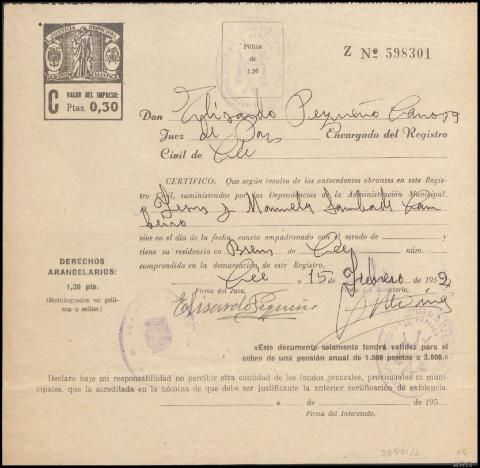 C VALOR DEL IMPRESO:
Ptas. 0,30
Póliza
de
1,50
Z Nº 598301
Don Elisardo Pequeño Canosa
Juez de Paz Encargado del Registro
Civil de Cee
CERTIFICO: Que según resulta de los antecedentes obrantes en este Regis-
tro Civil, suministrados por las Dependencias de la Administración Municipal,
Jesus y Manuela Lambade Cam
beiro
vive en el día de la fecha, consta empadronado con el estado de
y tiene su residencia en Brens de Cee, núm.
comprendida en la demarcación de este Registro.
Cee a 15 de Febrero de 1952
DERECHOS
ARANCELARIOS:
1,20 pts.
(Reintegrados en póli-
zas o sellos)
Firma del Juez,
Elisardo Pequeño
«Este documento solamente tendrá validez para el
cobro de una pensión anual de 1.500 pesetas a 3.000.»
Declaro bajo mi responsabilidad no percibir otra cantidad de los fondos generales, provinciales ni muni-
cipales, que la acreditada en la nómina de que debe ser justificante la anterior certificación de existencia
a de de 195
Firma del Interesado.